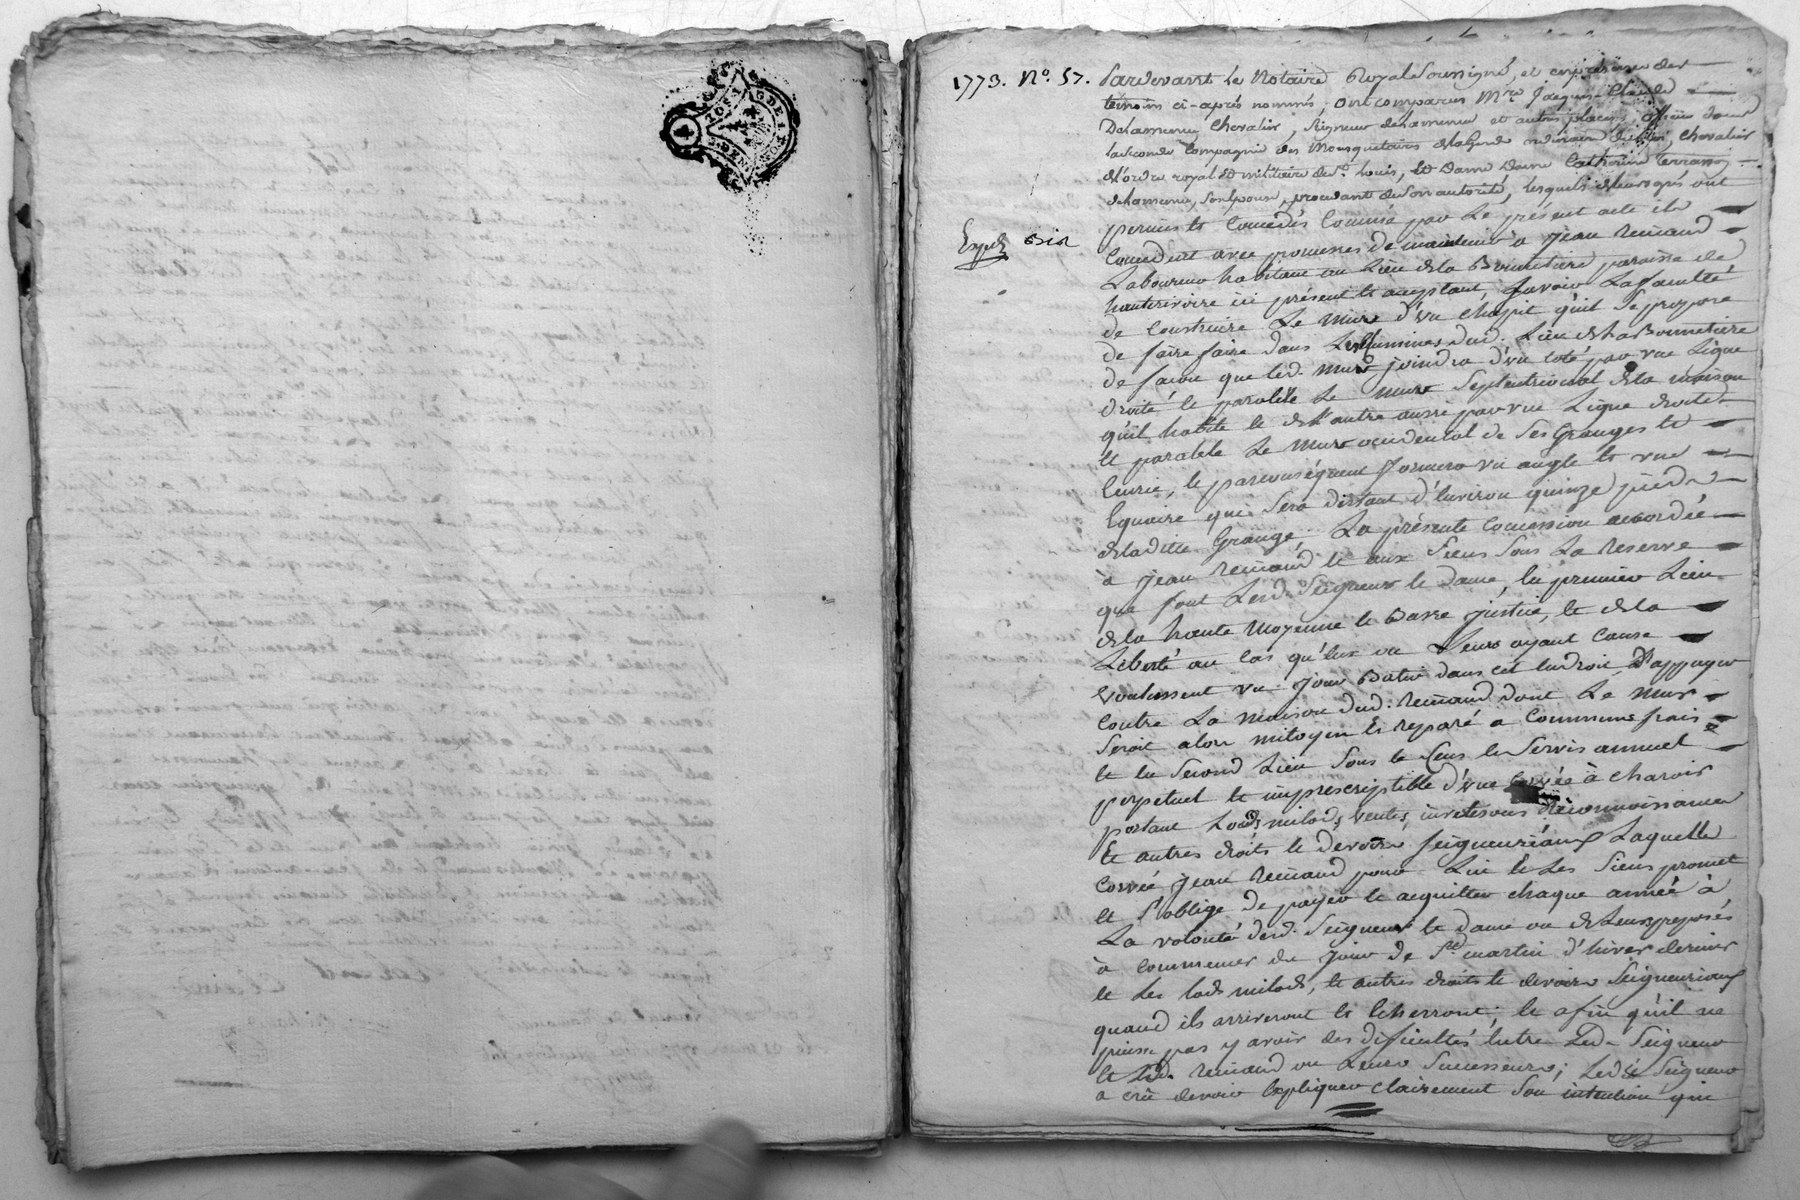 1773. N.º 57.
Pardevant le Notaire Royal Soussigné, et en présence des
témoins ci-après nommés, ont comparus M.re Jacques Claude
Delamenue Chevalier, Seigneur delamenue et autres places, officier dans
la seconde Compagnie des Mousquetaires de la garde ordinaire du Roi, Chevalier
de l'ordre royal et militaire de S.t Louis, et Dame Dame Catherine Terrasson
delamenue, son épouse, procedant de son autorité, lesquels de leurs grés ont
Expédié
permis et Concedés Comme par Le présent acte ils
Concedent avec promesses de maintenir à Jean Reinaud
Laboureur habitant au Lieu de la Bonnetiere paroisse de
hauterivoire ici présent et acceptant, Savoir La faculté
de Construire Le Mur d'un chapit qu'il se propose
de faire faire dans Les dud. Lieu de La Bonnetiere
de façon que led. Mur joindra d'un coté par une Ligne
droite et paralele Le Mur Septentrional de la maison
qu'il habite et de l'autre aussi par une Ligne droite
et paralele Le Mur occidental de Ses Granges et
Ecurie, et par consequent formera un angle et une
Equaire qui Sera distant d'Environ quinze pieds
de la dite Grange, La présente Concession accordée
à Jean Reinaud et aux Siens Sous La Reserve
que font Lesd. Seigneur et Dame, En premier Lieu
de la haute Moyenne et Basse Justice, et de la
Liberté au Cas qu'Eux ou Leurs ayant Cause
voulussent un Jour Batir dans cet Endroit d'appuyer
Contre La Maison dud. Reinaud dont Le Mur
Seroit alors mitoyen et reparé a Communs frais
et En Second Lieu Sous le Cens et Servis annuel
perpetuel et imprescriptible d'une Corvée à Charois
portant Lods, milods, ventes, investisons Reconnoissances
Et autres droits et devoirs Seigneuriaux Laquelle
Corvée Jean Reinaud pour Lui et Les Siens promet
et S'oblige de payer et acquitter chaque année à
La volonté desd. Seigneur et Dame ou de Leurs preposés
à Commencer du Jour de S.t Martin d'hiver dernier
et Les lods milods, et autres droits et devoirs Seigneuriaux
quand ils arriveront et Echerront; et afin qu'il ne
puisse pas y avoir des difficultés Entre Led. Seigneur
et Led. Reinaud ou Leurs Successeurs; Led. Seigneur
a crû devoir Expliquer Clairement Son intention qui